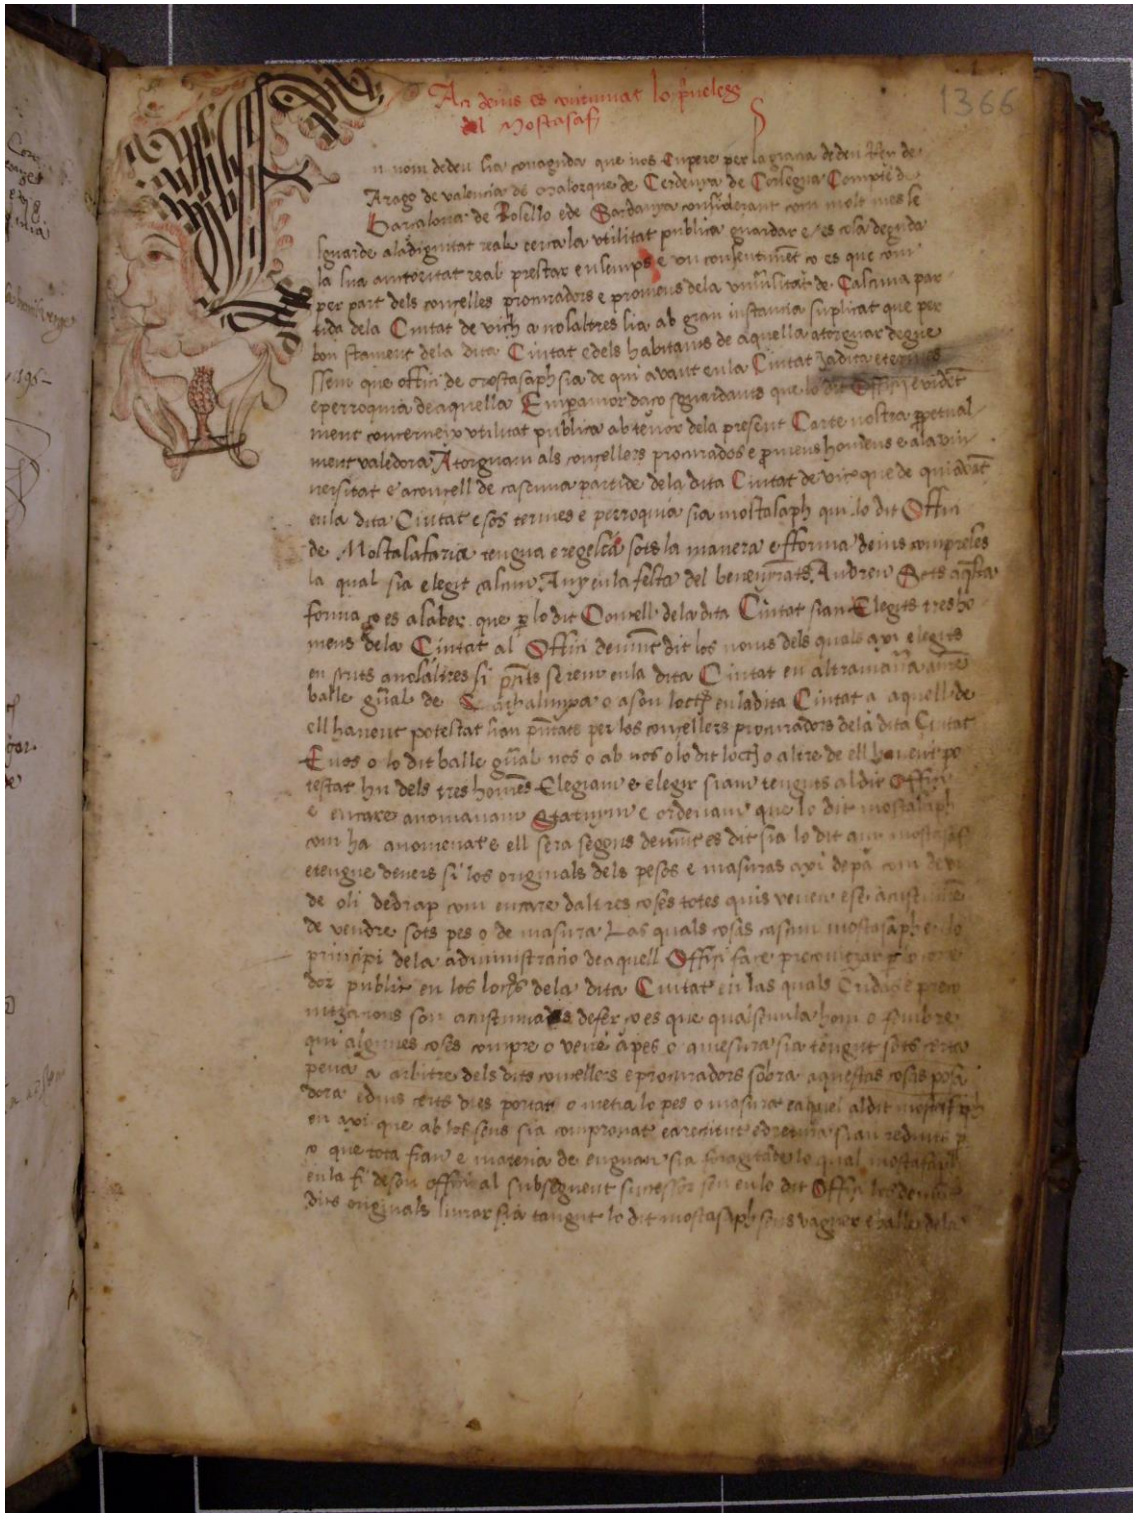 1366
Aci deius es continuat lo priveleg
del Mostasaf
n nom de deu sia coneguda que nos en pere per la gracia de deu Rey de
Arago de valencia de malorque de Cerdenya de Corsegua Compte d
Barcalona de Rosello e de Sardanya considerant com molt mes se
sguarde a la dignitat real cerca la utilitat publica guardar e es cosa deguda
la sua auctoritat real prestar ensemps e un consentiment co es que com
per part dels concelles procuradors e promens dela universitat de Cascuna par
tida dela Ciutat de vich a nosaltres sia ab gran instancia suplicat que per
bon stament dela dita Ciutat e dels habitants de aquella atorguar degue
ssem que offici de mostasaph sia de qui avant en la Ciutat ja dita e termens
e perroquia de aquella E nper amor daço sguardants que lo dit Offici evident
ment concerneix utilitat publica ab tenor dela present Carte nostra perpetual
ment valedora Atorguam als concellers procurados e promens homens e ala uni
versitat e a concell de cascuna partide dela dita Ciutat de vic que de qui avant
en la dita Ciutat e sos termes e perroquia sia mostasaph qui lo dit Offici
de Mostasafaria tengua e regesca sots la manera e fforma deius compreses
la qual sia elegit cascun Any en la festa del benenyrat S. Andreu Sots aquesta
forma ço es a saber que per lo dit Concell dela dita Ciutat sian Elegits tres ho
mens dela Ciutat al Offici demunt dit los noms dels quals axi elegits
en scrits a nosaltres si presents serem en la dita Ciutat en altra manera a nostre
balle general de Cathalunya o a son loctinent en la dita Ciutat a aquell de
ell havent potestat sian presentats per los concellers procuradors dela dita Ciutat
E nos o lo dit balle general nos o ab nos o lo dit loctinent o altre de ell havent po
testat hu dels tres homens Elegiam e elegir siam tenguts al dit Offici
e encare anomanam Statuym e ordenam que lo dit mostasaph
com ha anomenat e ell sera segons demunt es dit sia lo dit any mostasaf
e tengue devers si los originals dels pesos e masuras axi de pa com de vi
de oli de drap com encare daltres coses totes quis venen e se acustumen
de vendre sots pes o de masura Las quals cosas cascun mostasaph en lo
principi dela administracio de aquell Offici face preconitzar per lo corre
dor public en los lochs dela dita Ciutat en las quals Cridas e preco
nitzacions son acustumades de fer ço es que qualsevulla hom o fembre
qui algunes coses compre o vene a pes o a mesura sia tengut sots certa
pena a arbitre dels dits concellers e procuradors sobra aquestas cosas posa
dora e dins certs dies portar o metra lo pes o masura e aquel al dit mostasaph
en axi que ab los seus sia compronat e a rectitut e dretura sian reduits per
ço que tota frau e materia de enguan sia foragitade lo qual mostasaph
en la fi de son offici al subseguent successor seu en lo dit Offici los demunt
dits originals liurar sia tangut lo dit mostasaph sens vaguer e balle dela